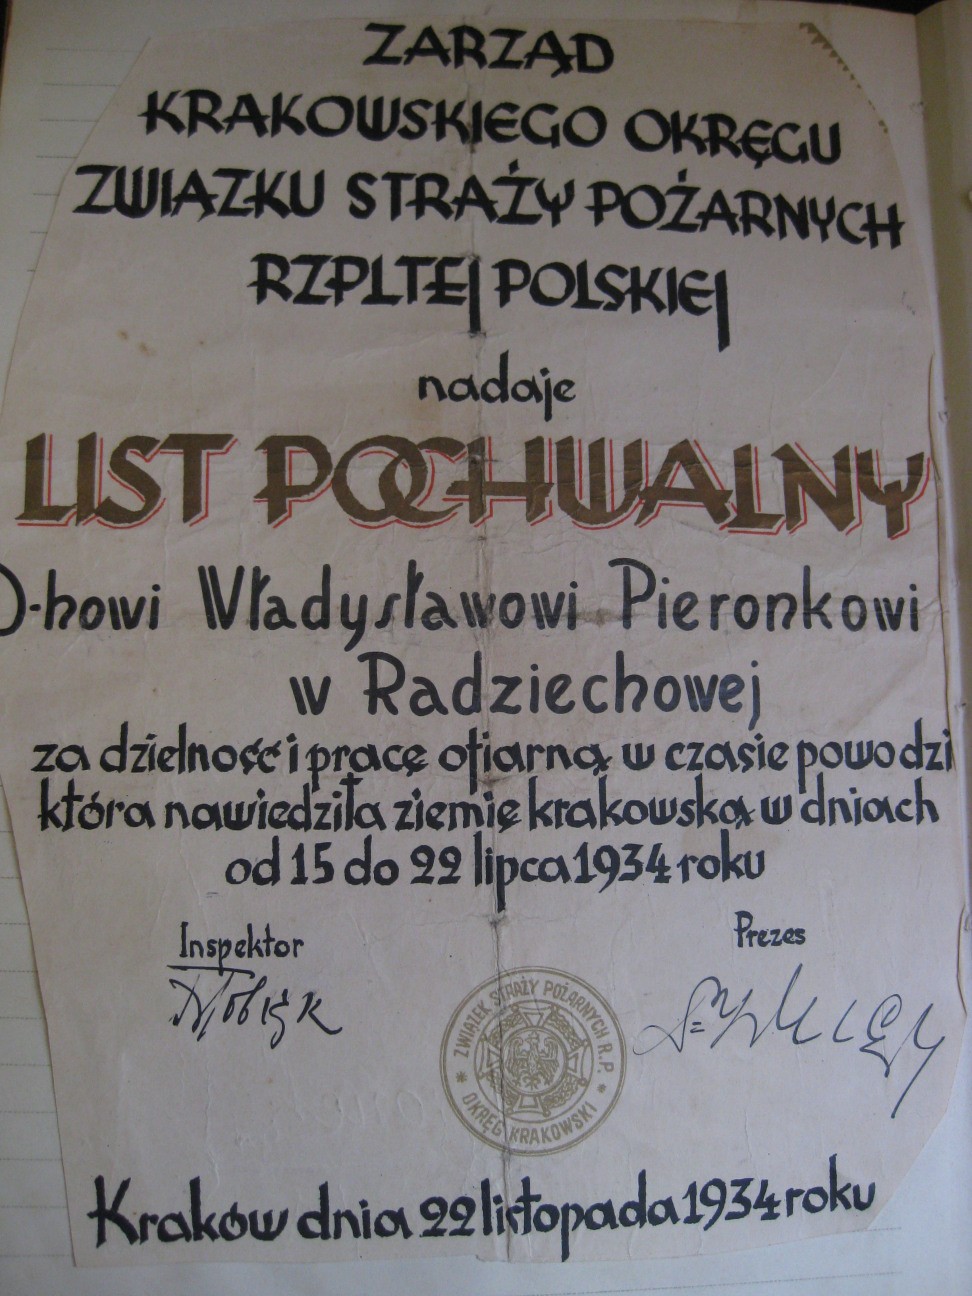 ZARZĄD
KRAKOWSKIEGO OKRĘGU
ZWIĄZKU STRAŻY POŻARNYCH
RZPLTEJ POLSKIEJ
nadaje
LIST POCHWALNY
D-howi Władysławowi Pieronkowi
w Radziechowej
za dzielność i pracę ofiarną w czasie powodzi
która nawiedziła ziemię krakowską w dniach
od 15 do 22 lipca 1934 roku
Inspektor
Prezes
ZWIĄZEK STRAŻY POŻARNYCH R.P.
* OKRĘG KRAKOWSKI *
Kraków dnia 22 listopada 1934 roku